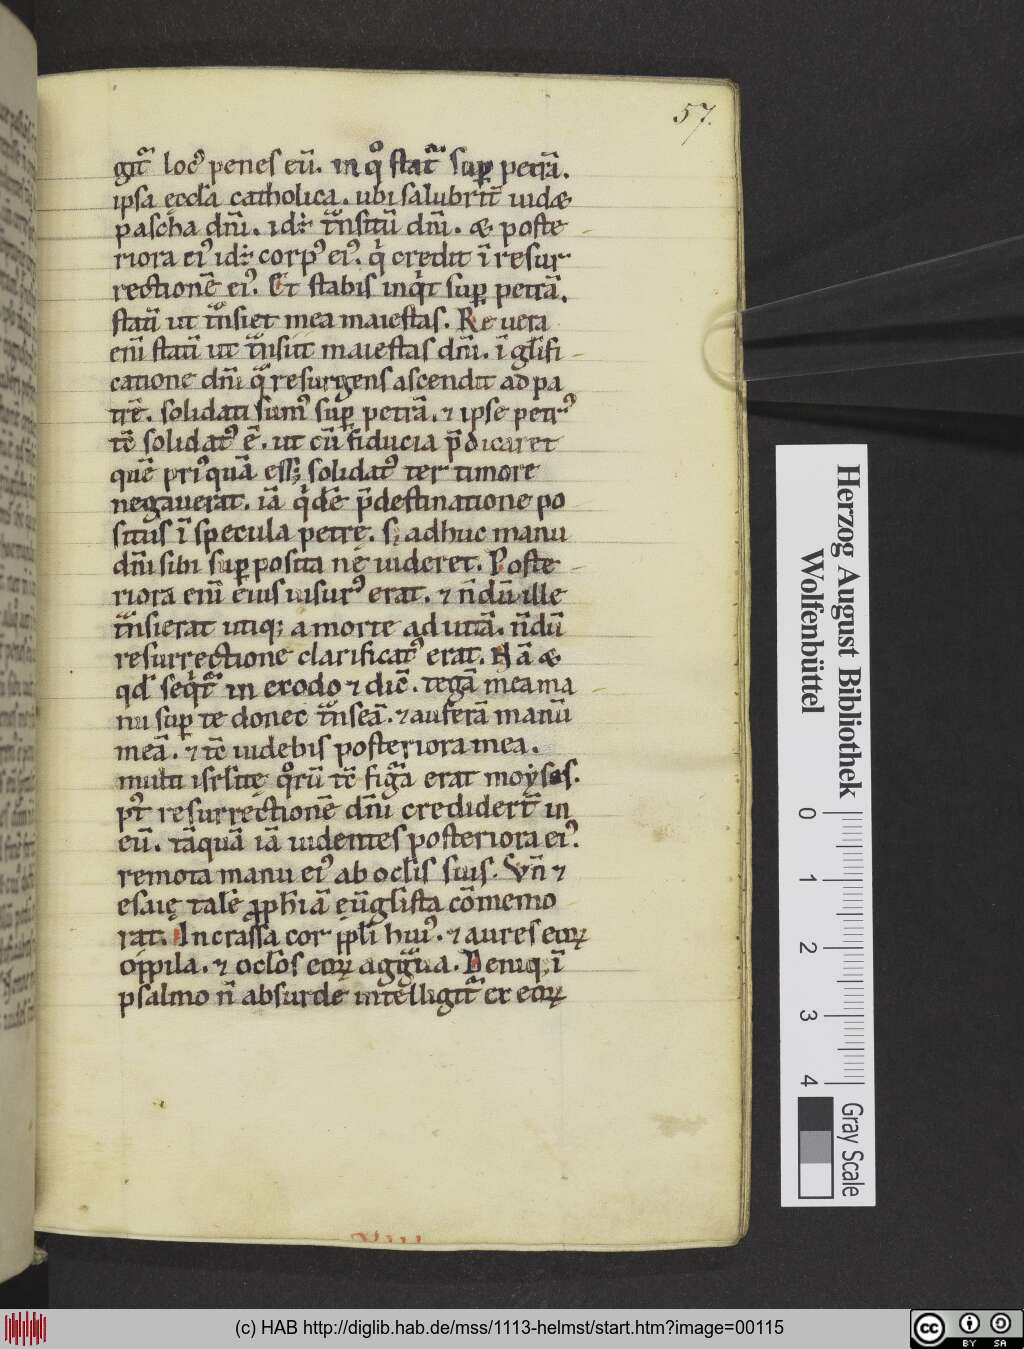 57.
gitᷓ locꝰ penes eū. in qͦ statᷓ suꝑ petrā.
ipsa ęccl̄a catholica. ubi salubrit̄ uidæ
pascha dn̄i. idē tᷓnsitū dn̄i. & poste
riora eiꝰ idē corpꝰ eiꝰ. q̇ credit ī resur
rectionē eiꝰ. Et stabis inq̇t suꝑ petrā.
statī ut tᷓnsiet mea maiestas. Re uera
enī statī ut tᷓnsiit maiestas dn̄i. ī gl̄ifi
catione dn̄i qᷓ resurgens ascendit ad pa
trē. solidati sumꝰ suꝑ petrā. ⁊ ipse petrꝰ
tē solidatꝰ ē. ut cū fiducia p̄dicaret
quē priꝰquā ess; solidatꝰ ter timore
negauerat. iā q̇dē p̄destinatione po
situs ī specula petrę. s; adhuc manu
dn̄i sibi suꝑposita nę uideret. Poste
riora enī eius uisurꝰ erat. ⁊ n̄dū ille
tᷓnsierat utiq; a morte ad uitā. n̄dū
resurrectione clarificatꝰ erat. Nā &
qd̄ seq̇tᷓ in exodo ⁊ dic̄. tegā mea ma
nu suꝑ te donec tᷓnseā. ⁊ auferā manū
meā. ⁊ tē uidebis posteriora mea.
multi isrl̄itę qͦrū tē figᷓa erat moẏses.
pt̄ resurrectionē dn̄i crediderт̄ in
eū. tāquā iā uidentes posteriora eiꝰ.
remota manu eiꝰ ab oclis suis. Vn̄ ⁊
esaię talē ꝓph̄iā eūglista cōmemo
rat. Incrassa cor ppl̄i huiꝰ. ⁊ aures eoꝝ
oppila. ⁊ ocl̄os eoꝝ aggᷓua. Deniq; ī
psalmo n̄ absurde intelligitᷓ ex eoꝝ
Herzog August Bibliothek
Wolfenbüttel
0 1 2 3 4
Gray Scale
(c) HAB http://diglib.hab.de/mss/1113-helmst/start.htm?image=00115
cc BY SA